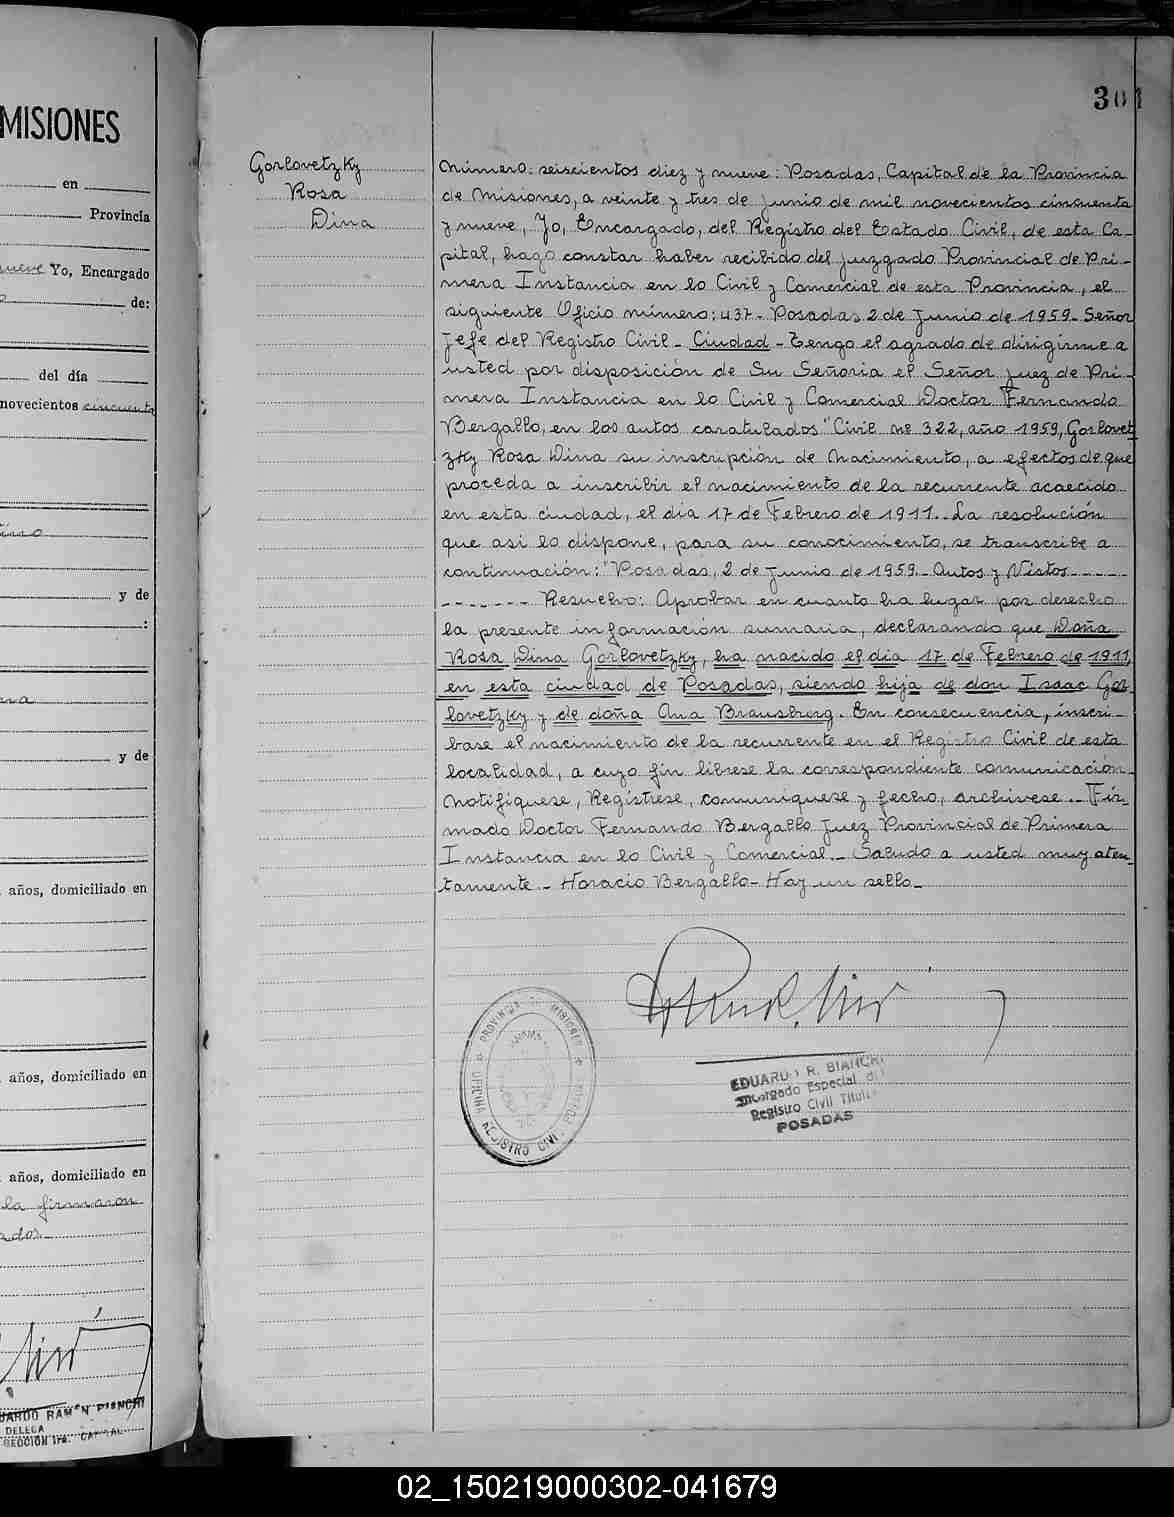 MISIONES
en
Provincia
nueve Yo, Encargado
de:
del día
novecientos cincuenta
y de
:
y de
años, domiciliado en
años, domiciliado en
años, domiciliado en
la firmaron
RAMÓN BIANCHI
DELEGA
SECCIÓN 1ra. CAPITAL
301
Gorlovetzky
Rosa
Dina
Número: seiscientos diez y nueve: Posadas, Capital de la Provincia
de Misiones, a veinte y tres de Junio de mil novecientos cincuenta
y nueve, Yo, Encargado, del Registro del Estado Civil, de esta Ca-
pital, hago constar haber recibido del Juzgado Provincial de Pri-
mera Instancia en lo Civil y Comercial de esta Provincia, el
siguiente Oficio número: 437- Posadas 2 de Junio de 1959- Señor
Jefe del Registro Civil- Ciudad- Tengo el agrado de dirigirme a
usted por disposición de Su Señoria el Señor Juez de Pri-
mera Instancia en lo Civil y Comercial Doctor Fernando
Bergallo, en los autos caratulados "Civil nº 322, año 1959, Gorlovet
zky Rosa Dina su inscripción de Nacimiento, a efectos de que
proceda a inscribir el nacimiento de la recurrente acaecido
en esta ciudad, el día 17 de Febrero de 1911.. La resolución
que asi lo dispone, para su conocimiento, se transcribe a
continuación: "Posadas, 2 de Junio de 1959- Autos y Vistos-----
------- Resuelvo: Aprobar en cuanto ha lugar por derecho
la presente información sumaria, declarando que Doña
Rosa Dina Gorlovetzky, ha nacido el dia 17 de Febrero de 1911,
en esta ciudad de Posadas, siendo hija de don Isaac Gor
lovetzky y de doña Ana Brausberg. En consecuencia, inscri-
base el nacimiento de la recurrente en el Registro Civil de esta
localidad, a cuyo fin librese la correspondiente comunicación-
Notifíquese, Regístrese, comuníquese y fecho, archivese.- Fir-
mado Doctor Fernando Bergallo Juez Provincial de Primera
Instancia en lo Civil y Comercial- Saludo a usted muy aten-
tamente- Horacio Bergallo- Hay un sello-
PROVINCIA DE MISIONES
OFICINA REGISTRO CIVIL POSADAS
EDUARDO R. BIANCHI
Encargado Especial del
Registro Civil Titular
POSADAS
02_150219000302-041679